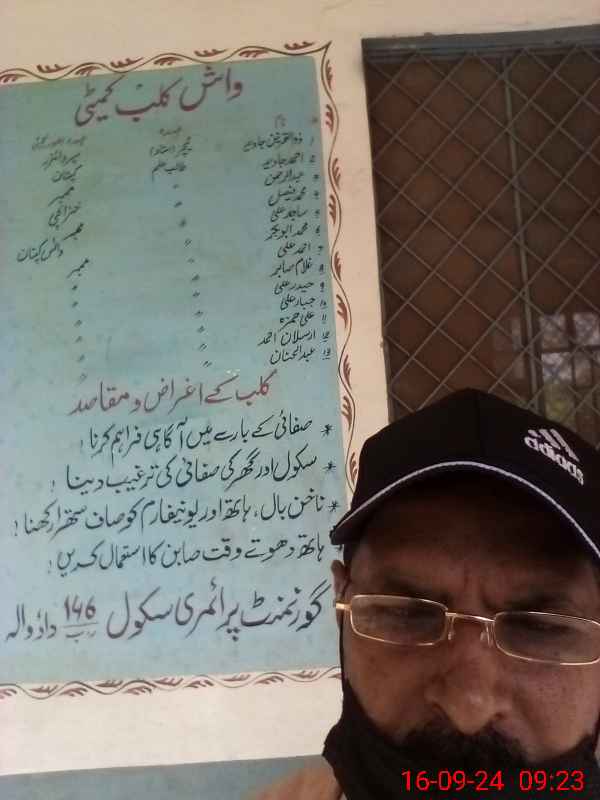 واش کلب کمیٹی
نام عہدہ
۱ ذوالقرنین جاوید ٹیچر (استاد) سپروائزر
۲ احمد جاوید طالب علم کیپٹن
۳ عبدالرحمن " ممبر
۴ محمد فیصل "
۵ ساجد علی " خزانچی
۶ محمد ابوبکر " ممبر
۷ احمد علی " وائس کیپٹن
۸ غلام صابر " ممبر
۹ حیدر علی " "
۱۰ جبار علی " "
۱۱ علی حمزہ " "
۱۲ ارسلان احمد " "
۱۳ عبدالحنان " "
کلب کے اغراض و مقاصد
* صفائی کے بارے میں آگاہی فراہم کرنا!
* سکول اور گھر کی صفائی کی ترغیب دینا!
* ناخن بال، ہاتھ اور یونیفارم کو صاف ستھرا رکھنا!
* ہاتھ دھوتے وقت صابن کا استعمال کریں!
گورنمنٹ پرائمری سکول 146 ر ب داؤ والہ
adidas
16-09-24 09:23